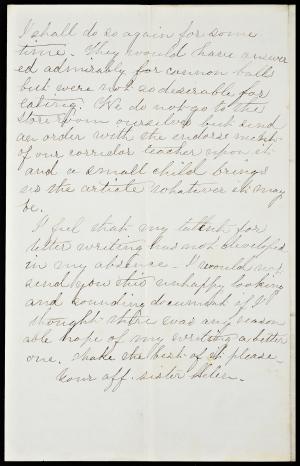 I shall do so again for some
time. They would have answer
ed admirably for cannon balls
but were not so desirable for
eating. We do not go to the
Store room ourselves but send
an order with the endorsement
of our corridor teacher upon it
and a small child brings
us the article whatever it may
be.
I feel that my talent for
letter writing has not developed
in my absence - I would not
send you this unhappy looking
and sounding document if I
thought there was any reason
able hope of my writing a better
one. Make the best of it please -
Your aff. sister Helen.